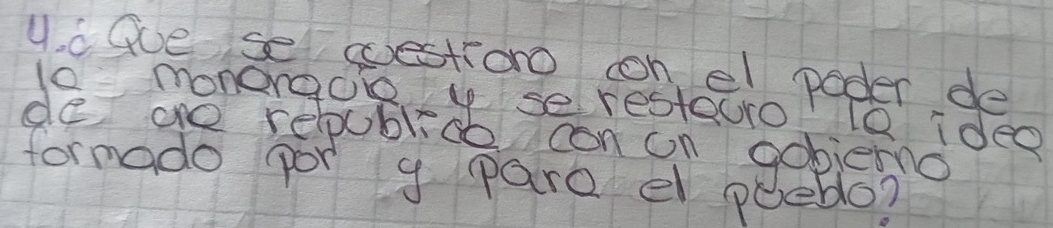 4.¿Que se cuestiono con el poder de
la monarquia y se restauro la idea
de una republica con un gobierno
formado por y para el pueblo?